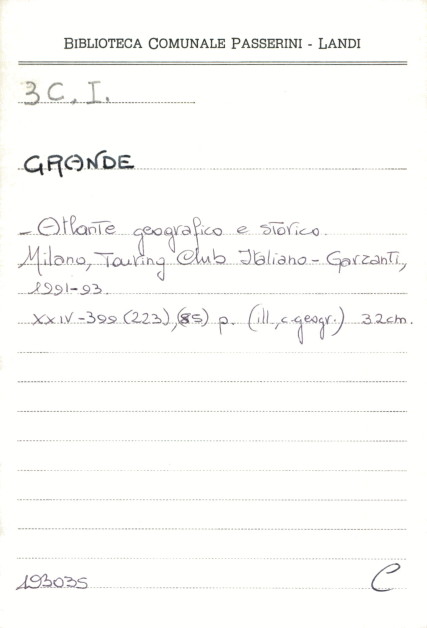 BIBLIOTECA COMUNALE PASSERINI - LANDI
3 C. I.
GRANDE
- Atlante geografico e storico.
Milano, Touring Club Italiano - Garzanti,
1991-93.
XXIV-399 (223), (85) p. (ill., c. geogr.) 32 cm.
193035 C